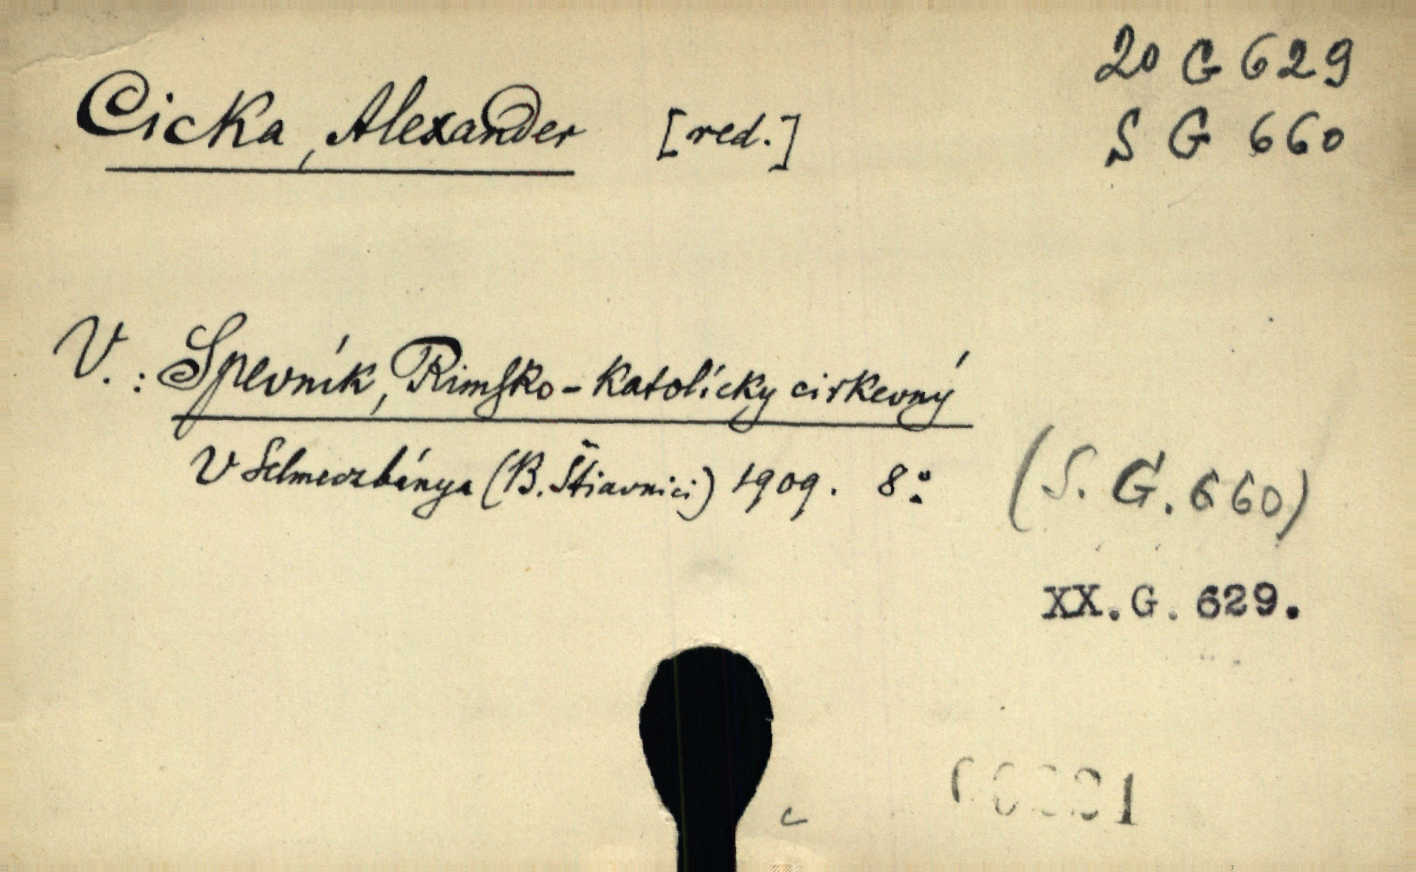 20 G 629
Cicka, Alexander [red.]
S G 660
V.: Spevník, Rimsko-katolícky cirkevný
V Selmeczbánya (B. Štiavnici) 1909. 8°.
(S. G. 660)
XX.G. 629.
c